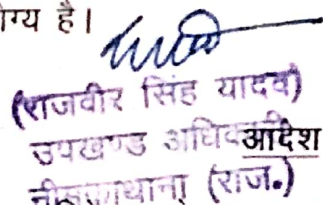 ग्य है।
(राजवीर सिंह यादव)
उपखण्ड अधिकारी
आदेश
नीमकाथाना (राज.)